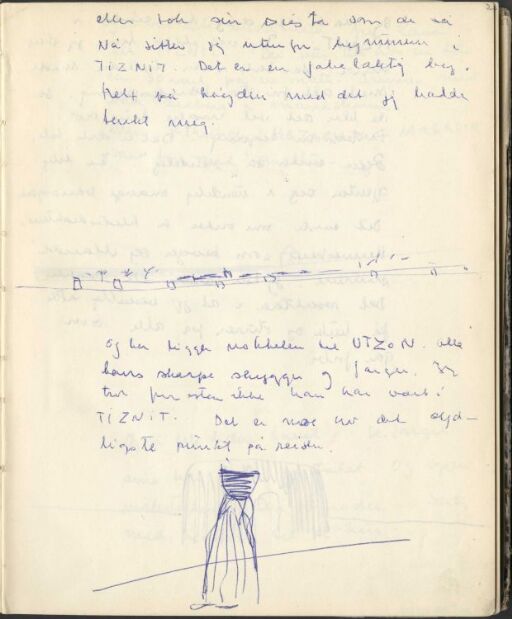 eller
Nå sitter jeg utenfor bymuren i
TIZNIT. Det er en fabelaktig by.
helt på høyden med det jeg hadde
tenkt meg.
Og her ligger nøkkelen til UTZON. alle
hans skarpe skygger og farger. Jeg
tror forresten ikke han har vært i
TIZNIT. Det er noe av det
ligste punkt på reisen.